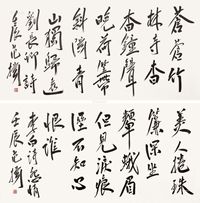 蒼蒼竹
林寺杳
杳鐘聲
晚荷笠帶
斜陽青
山獨歸遠
劉長卿詩
壬辰
美人捲珠
簾深坐
顰蛾眉
但見淚痕
濕不知心
恨誰
李白詩怨情
壬辰